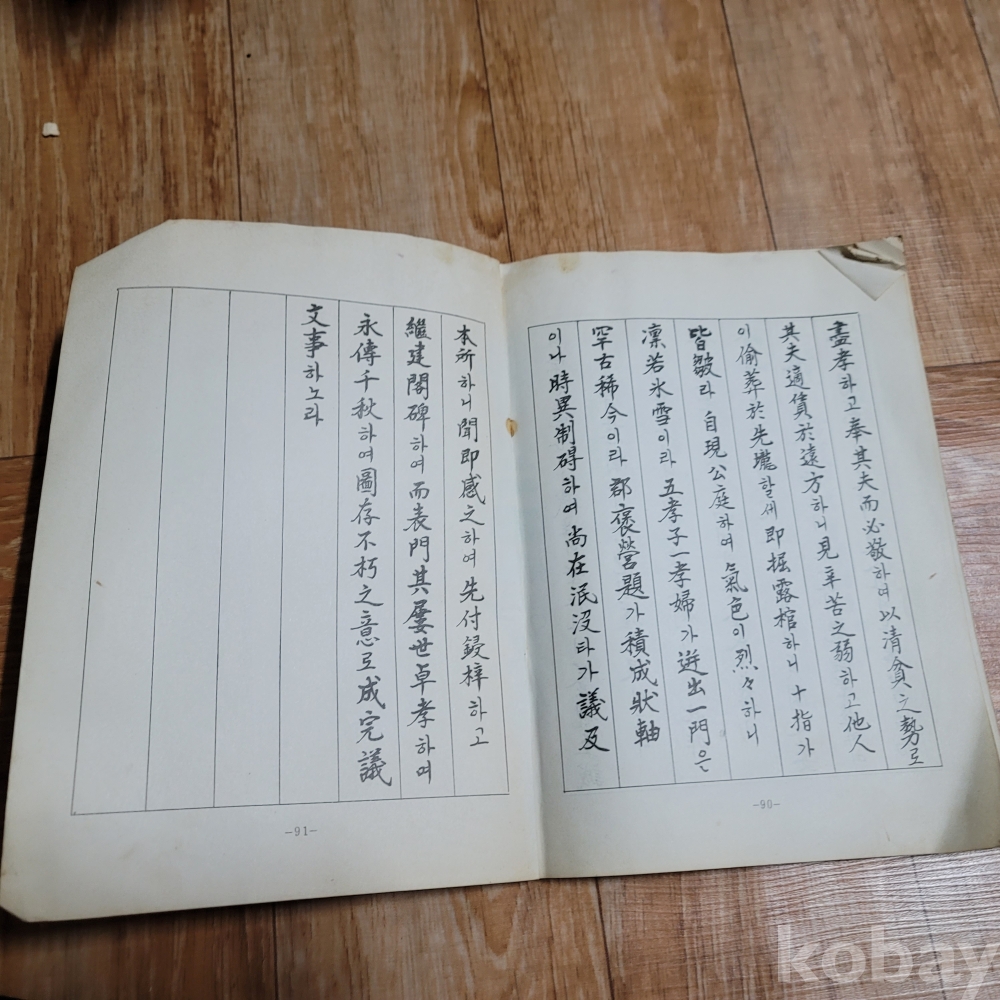 盡孝하고 奉其夫而必敬하며 以淸貧之勢로
其夫適貨於遠方하니 見辛苦之弱하고 他人
이 偷葬於先壠할세 即掘露棺하니 十指가
皆皴라 自現公庭하며 氣色이 烈々하니
凛若氷雪이라 五孝子一孝婦가 迸出一門은
罕古稀今이라 郡褒營題가 積成狀軸
이나 時異制碍하여 尚在泯沒타가 議及
-90-
本所하니 聞即感之하여 先付鋟梓하고
繼建閣碑하여 而表門其屢世卓孝하여
永傳千秋하여 圖存不朽之意로 成完議
文事하노라
-91-
kobay